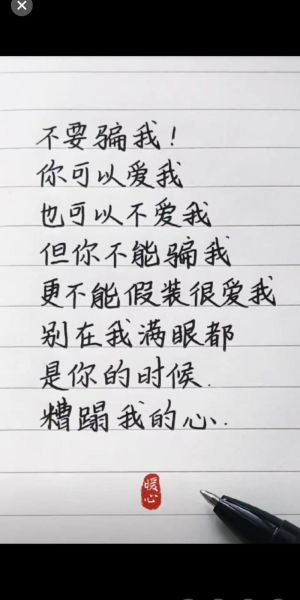 不要骗我！
你可以爱我
也可以不爱我
但你不能骗我
更不能假装很爱我
别在我满眼都
是你的时候.
糟蹋我的心.
暖
心